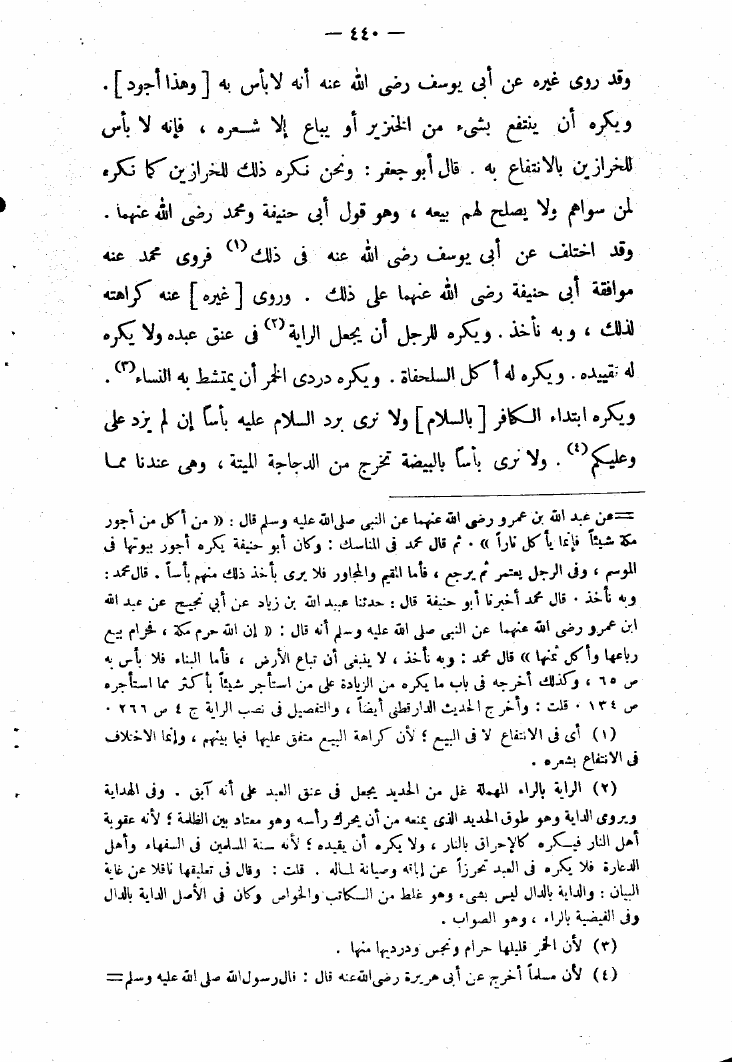 — ٤٤٠ —
وقد روى غيره عن أبى يوسف رضى الله عنه أنه لا بأس به [ وهذا أجود ] .
ويكره أن ينتفع بشىء من الخنزير أو يباع إلا شعره ، فإنه لا بأس
للخرازين بالانتفاع به . قال أبو جعفر : ونحن نكره ذلك للخرازين كما نكره
لمن سواهم ولا يصلح لهم بيعه ، وهو قول أبى حنيفة ومحمد رضى الله عنهما .
وقد اختلف عن أبى يوسف رضى الله عنه فى ذلك (١) فروى محمد عنه
موافقة أبى حنيفة رضى الله عنهما على ذلك . وروى [ غيره ] عنه كراهته
لذلك ، وبه نأخذ . ويكره للرجل أن يجعل الراية (٢) فى عنق عبده ولا يكره
له تقييده . ويكره له أكل السلحفاة . ويكره دردى الخمر أن يمتشط به النساء (٣) .
ويكره ابتداء الكافر [ بالسلام ] ولا نرى برد السلام عليه بأساً إن لم يزد على
وعليكم (٤) . ولا نرى بأساً بالبيضة تخرج من الدجاجة الميتة ، وهى عندنا مما
= عن عبد الله بن عمرو رضى الله عنهما عن النبى صلى الله عليه وسلم قال : « من أكل من أجور
مكة شيئاً فإنما يأكل ناراً » . ثم قال محمد فى المناسك : وكان أبو حنيفة يكره أجور بيوتها فى
الموسم ، وفى الرجل يعتمر ثم يرجع ، فأما المقيم والمجاور فلا يرى بأخذ ذلك منهم بأساً . قال محمد :
وبه نأخذ . قال محمد أخبرنا أبو حنيفة قال : حدثنا عبيد الله بن زياد عن أبي نجيح عن عبد الله
ابن عمرو رضى الله عنهما عن النبى صلى الله عليه وسلم أنه قال : « إن الله حرم مكة ، فحرام بيع
رباعها وأكل ثمنها » قال محمد : وبه نأخذ ، لا ينبغى أن تباع الأرض ، فأما البناء فلا بأس به
ص ٦٥ ، وكذلك أخرجه فى باب ما يكره من الزيادة على من استأجر شيئاً بأكثر مما استأجره
ص ١٣٤ . قلت : وأخرج الحديث الدارقطنى أيضاً ، والتفصيل فى نصب الراية ج ٤ ص ٢٦٦ .
(١) أى فى الانتفاع لا فى البيع ؛ لأن كراهة البيع متفق عليها فيما بينهم ، وإنما الاختلاف
فى الانتفاع بشعره .
(٢) الراية بالراء المهملة غل من الحديد يجعل فى عنق العبد على أنه آبق . وفى الهداية
ويروى الداية وهو طوق الحديد الذى يمنعه من أن يحرك رأسه وهو معتاد بين الظلمة ؛ لأنه عقوبة
أهل النار فيكره كالإحراق بالنار ، ولا يكره أن يقيده ؛ لأنه سنة المسلمين فى السفهاء وأهل
الدعارة فلا يكره فى العبد تحرزاً عن إباقه وصيانة لماله . قلت : وقال فى تعليقها ناقلا عن غاية
البيان : والداية بالدال ليس بشىء وهو غلط من الكاتب والخواص وكان فى الأصل الداية بالدال
وفى الفيضية بالراء ، وهو الصواب .
(٣) لأن الخمر قليلها حرام ونجس ودرديها منها .
(٤) لأن مسلماً أخرج عن أبى هريرة رضى الله عنه قال : قال رسول الله صلى الله عليه وسلم =